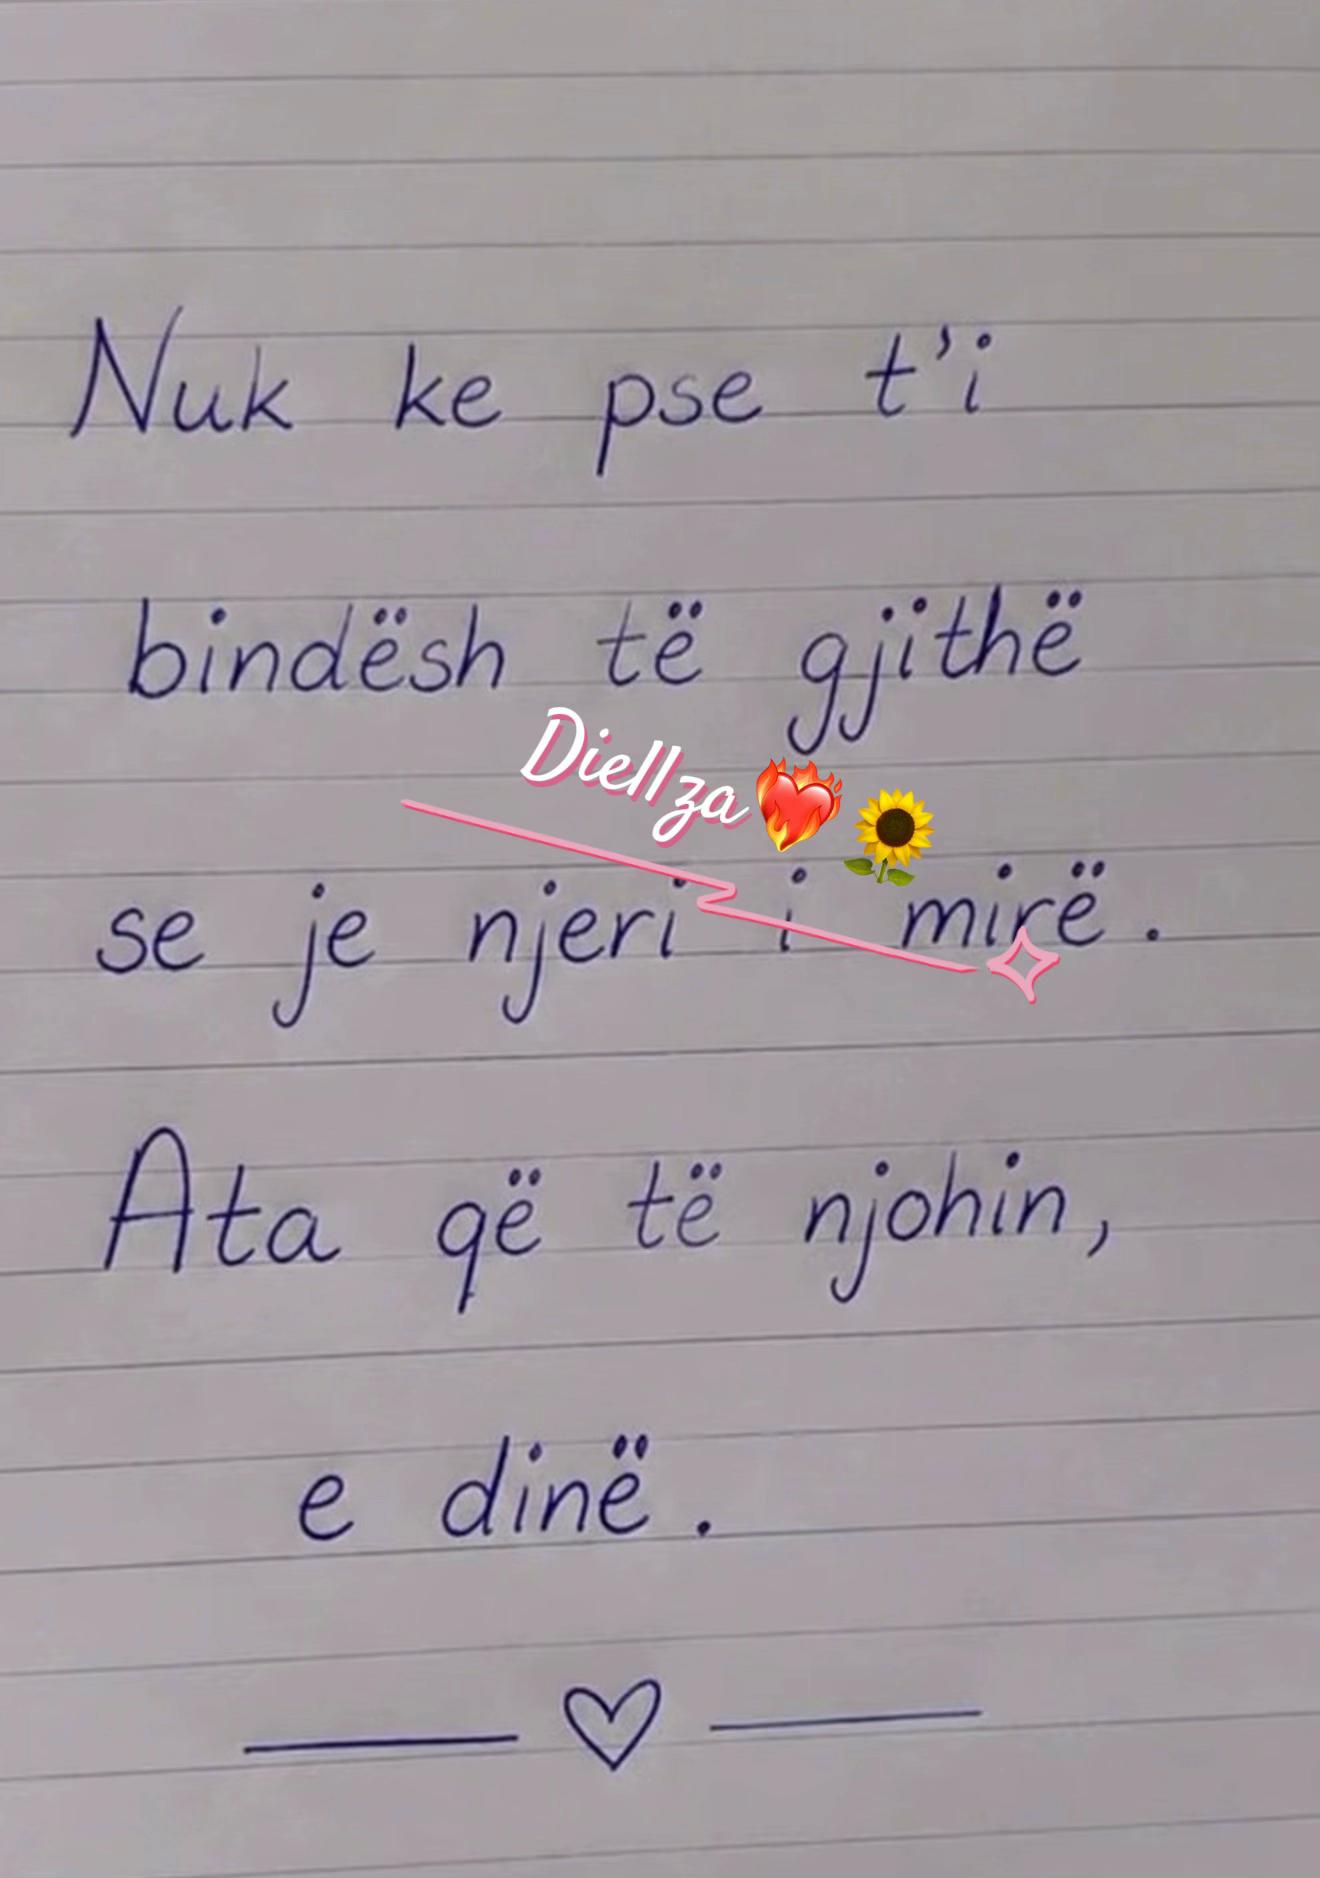 Nuk ke pse t'i
bindësh të gjithë
Diellza❤️‍🔥🌻
se je njeri i mirë.
Ata që të njohin,
e dinë.